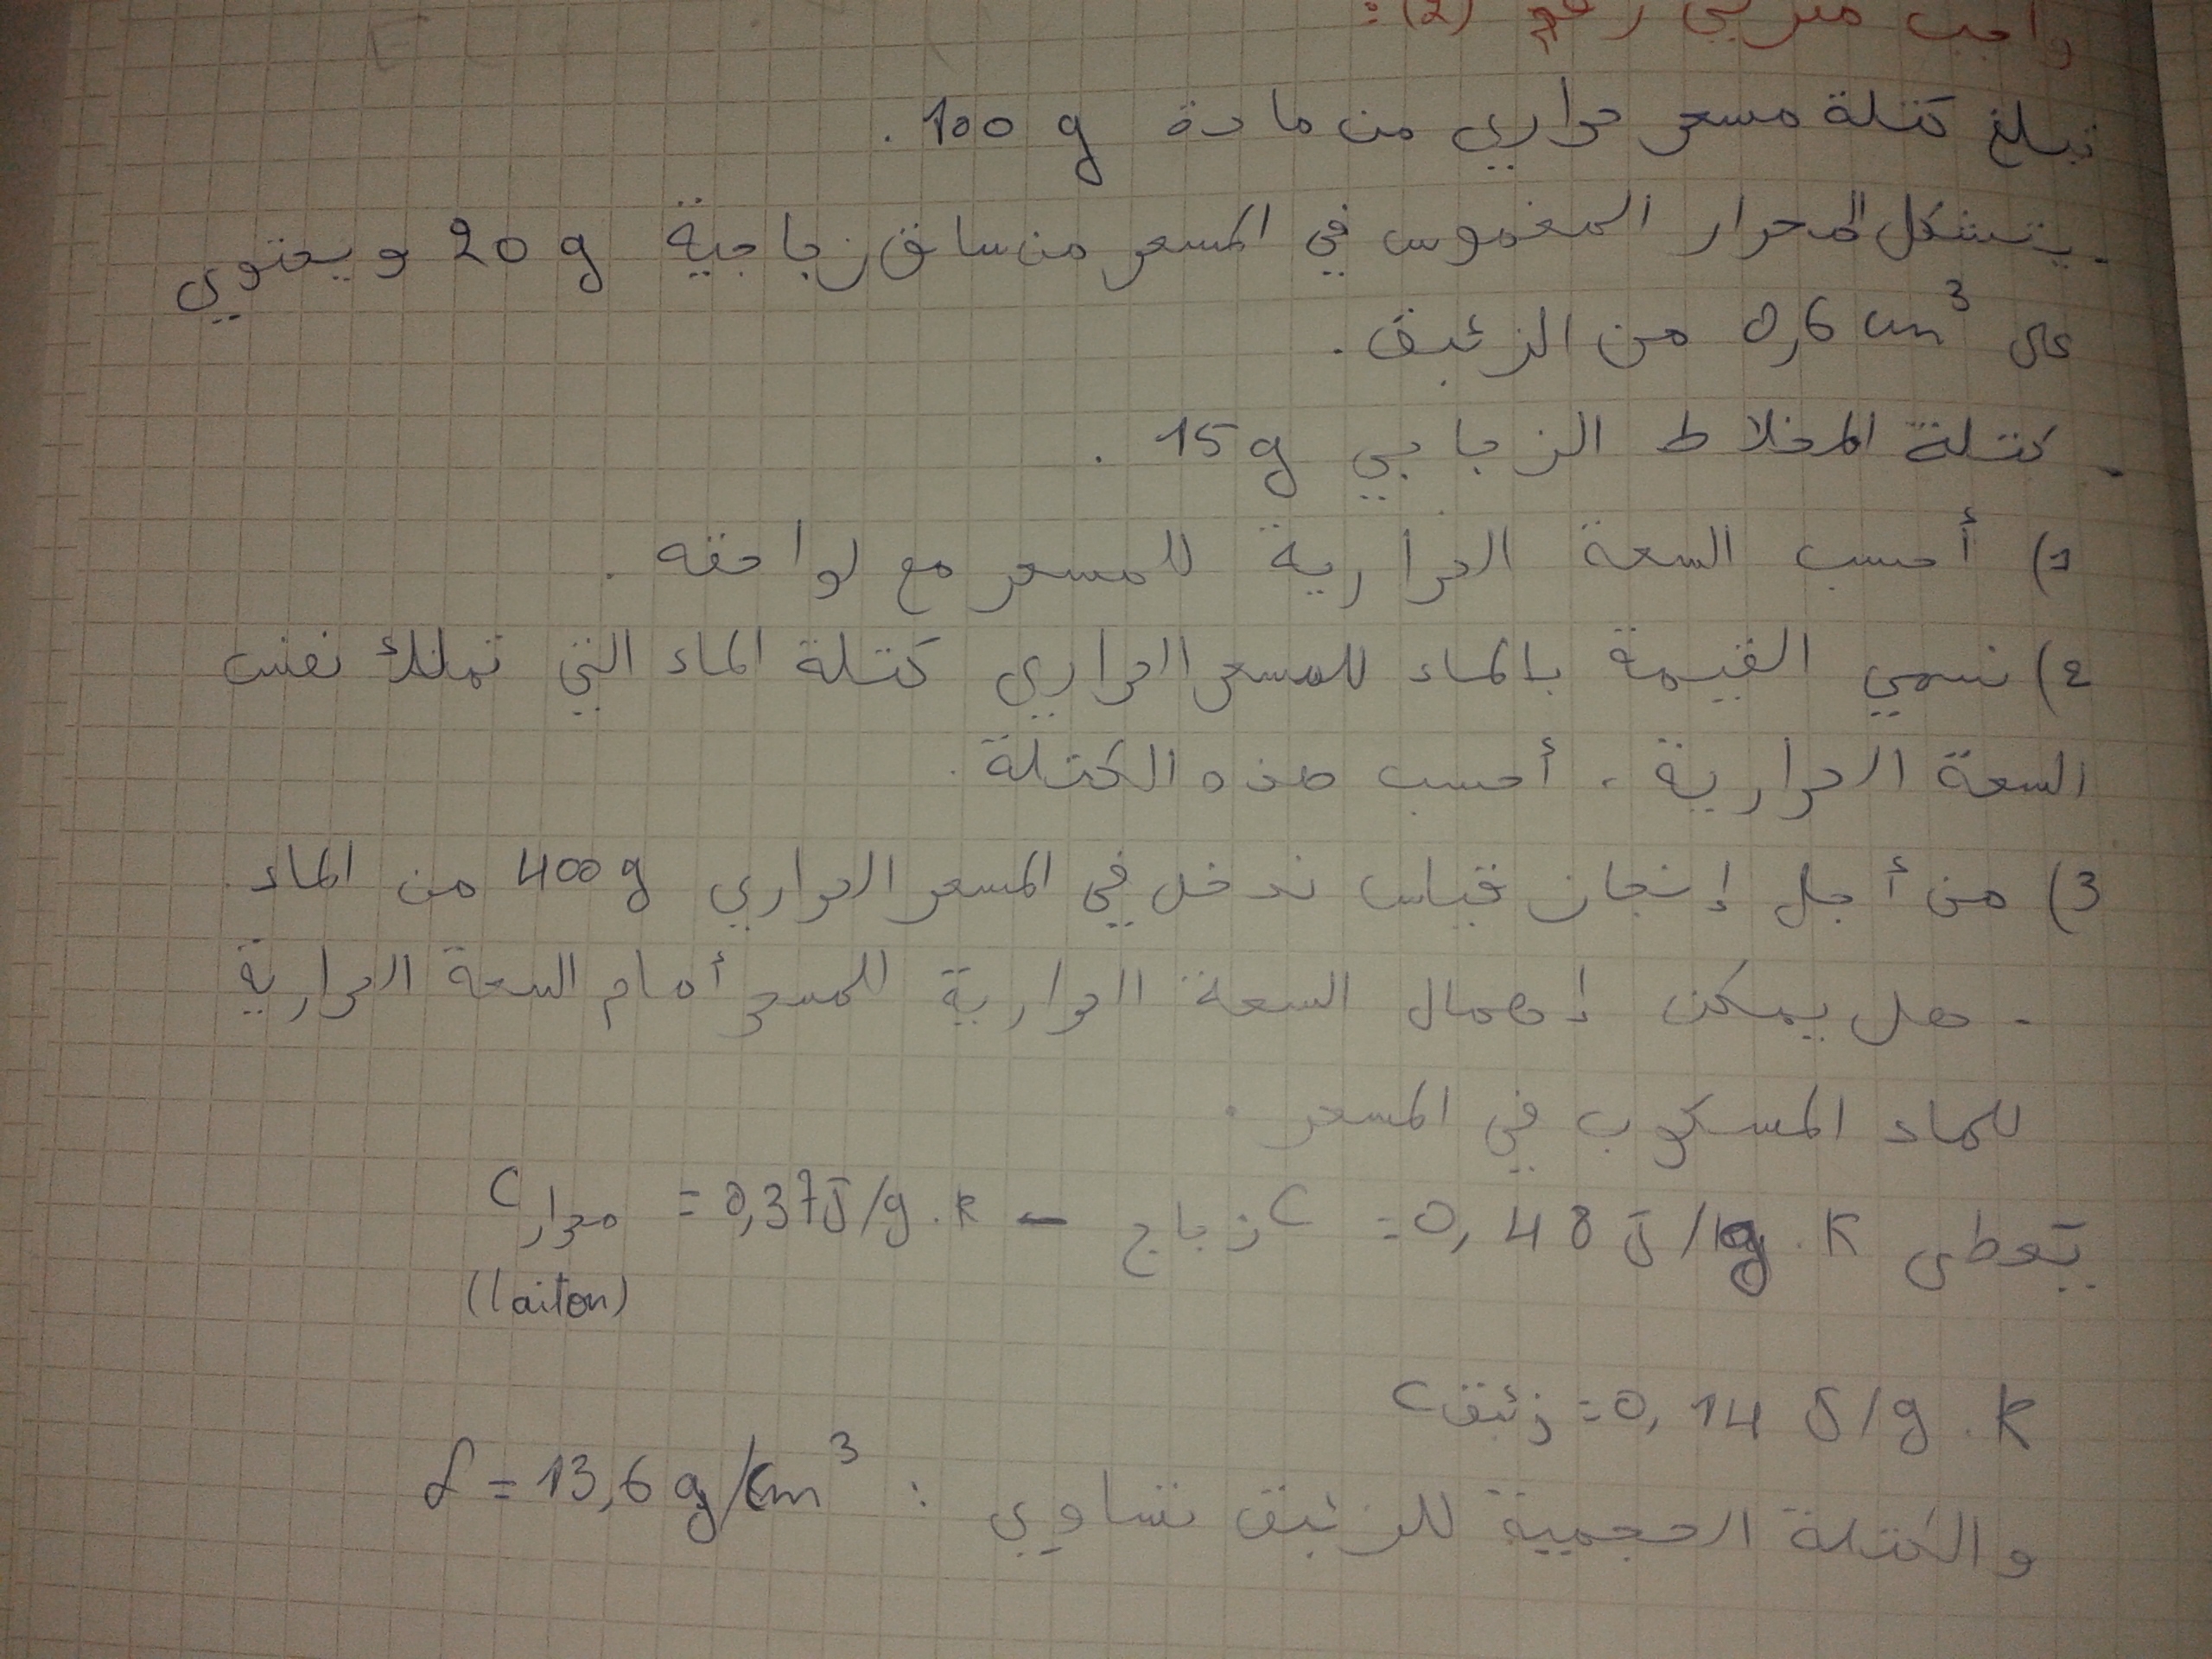 واجب منزلي رقم (2):
تبلغ كتلة مسعر حراري من مادة 100 g .
- يتشكل المحرار المغموس في المسعر من ساق زجاجية 20 g و يحتوي
على 0,6 cm³ من الزئبق .
- كتلة المخلاط الزجاجي 15 g .
1) أحسب السعة الحرارية للمسعر مع لواحقه .
2) نسمي القيمة بالماء للمسعر الحراري كتلة الماء التي تملك نفس
السعة الحرارية . أحسب هذه الكتلة .
3) من أجل إنجاز قياس ندخل في المسعر الحراري 400 g من الماء
- هل يمكن إهمال السعة الحرارية للمسعر أمام السعة الحرارية
للماء المسكوب في المسعر .
يعطى C زجاج = 0,48 J/g.K - C محرار = 0,37 J/g.K
(laiton)
C زئبق = 0,14 J/g.K
و الكتلة الحجمية للزئبق تساوي : ρ = 13,6 g/cm³